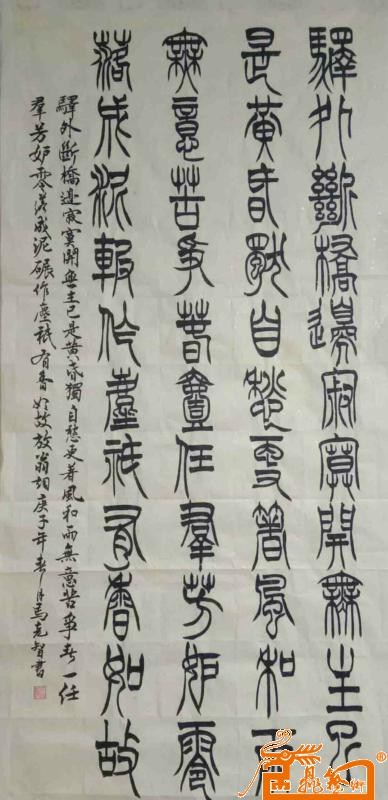 驛外斷橋邊寂寞開無主已
是黃昏獨自愁更箸風和雨
無意苦爭春壹任羣芳妒零
落成泥報作塵祇有香如故
驛外斷橋邊寂寞開無主已是黃昏獨自愁更著風和雨無意苦爭春一任
羣芳妒零落成泥碾作塵祇有香如故放翁詞庚子年春月馬克智書